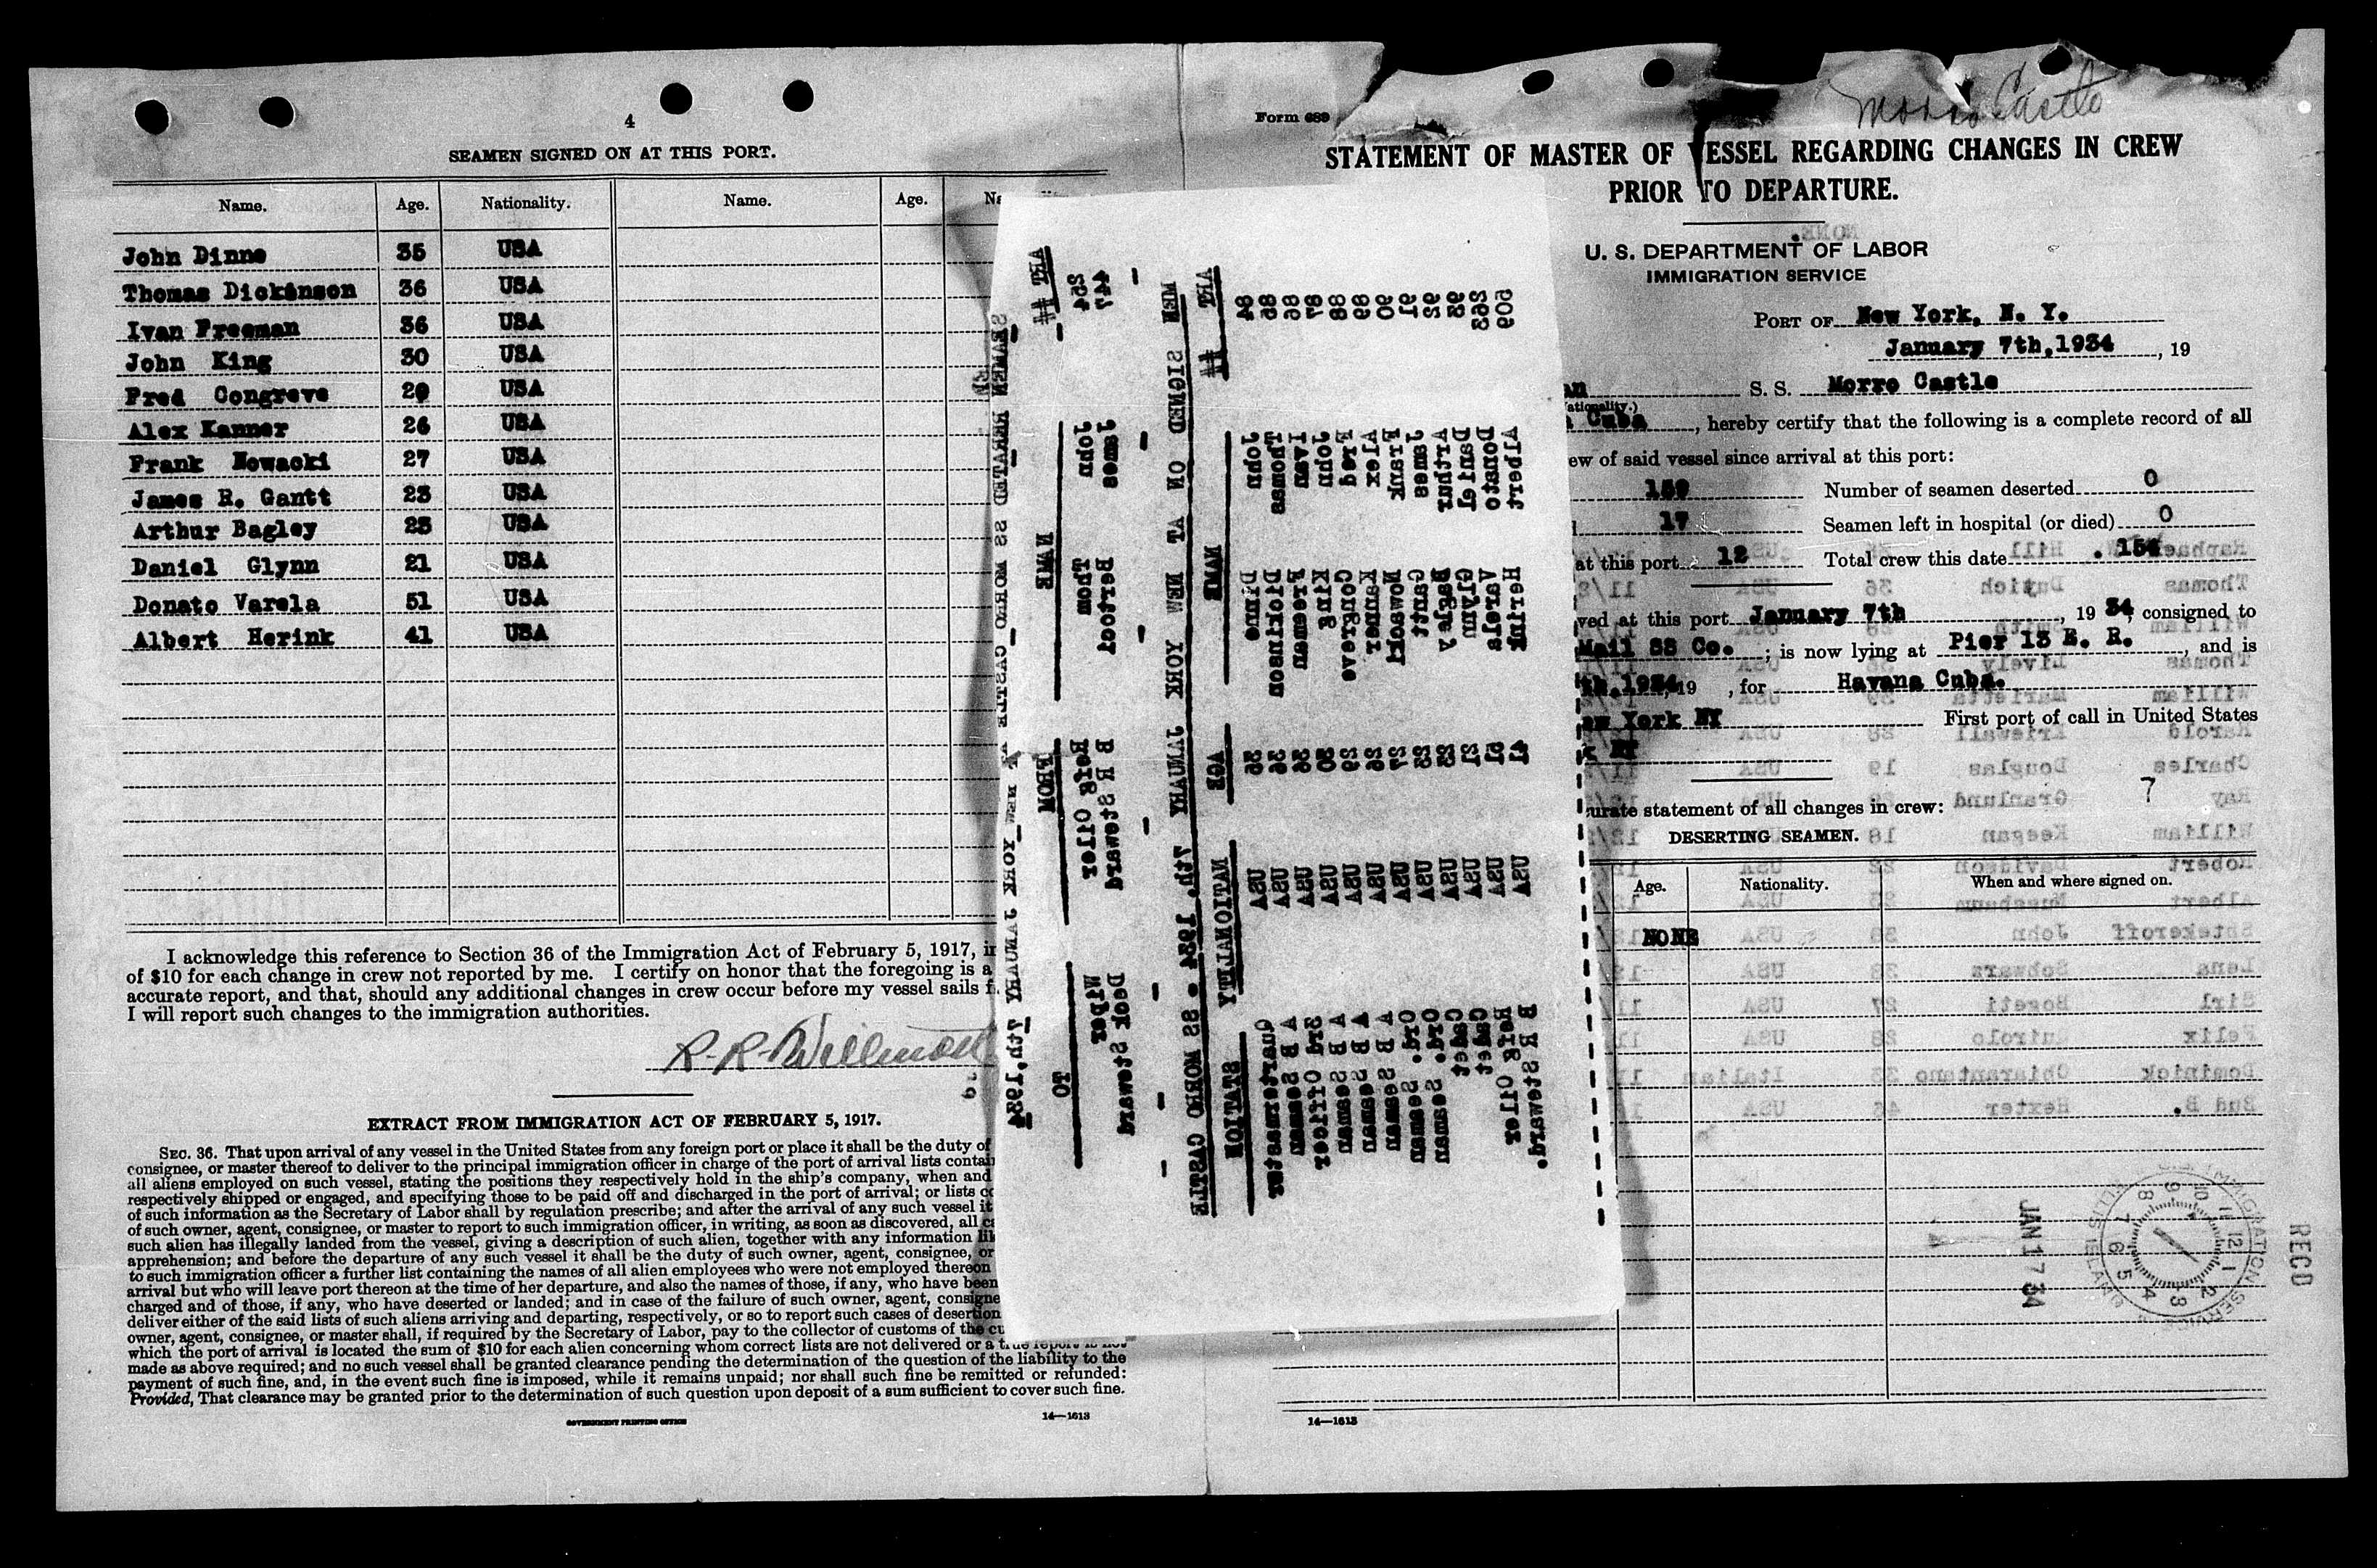 4
SEAMEN SIGNED ON AT THIS PORT.
Name. Age. Nationality. Name. Age.
John Dinne 35 USA
Thomas Dickinson 36 USA
Ivan Freeman 36 USA
John King 30 USA
Fred Congreve 29 USA
Alex Kanner 26 USA
Frank Nowacki 27 USA
James R. Gantt 23 USA
Arthur Bagley 23 USA
Daniel Glynn 21 USA
Donato Varela 51 USA
Albert Herink 41 USA
I acknowledge this reference to Section 36 of the Immigration Act of February 5, 1917,
of $10 for each change in crew not reported by me. I certify on honor that the foregoing is a
accurate report, and that, should any additional changes in crew occur before my vessel sails
I will report such changes to the immigration authorities.
R. R. Willmott
EXTRACT FROM IMMIGRATION ACT OF FEBRUARY 5, 1917.
SEC. 36. That upon arrival of any vessel in the United States from any foreign port or place it shall be the duty of
consignee, or master thereof to deliver to the principal immigration officer in charge of the port of arrival lists
all aliens employed on such vessel, stating the positions they respectively hold in the ship's company, when and
respectively shipped or engaged, and specifying those to be paid off and discharged in the port of arrival; or lists
of such information as the Secretary of Labor shall by regulation prescribe; and after the arrival of any such vessel it
of such owner, agent, consignee, or master to report to such immigration officer, in writing, as soon as discovered, all
such alien has illegally landed from the vessel, giving a description of such alien, together with any information
apprehension; and before the departure of any such vessel it shall be the duty of such owner, agent, consignee, or
to such immigration officer a further list containing the names of all alien employees who were not employed thereon
arrival but who will leave port thereon at the time of her departure, and also the names of those, if any, who have been
charged and of those, if any, who have deserted or landed; and in case of the failure of such owner, agent,
deliver either of the said lists of such aliens arriving and departing, respectively, or so to report such cases of desertion
owner, agent, consignee, or master shall, if required by the Secretary of Labor, pay to the collector of customs of the
which the port of arrival is located the sum of $10 for each alien concerning whom correct lists are not delivered or a true report is not
made as above required; and no such vessel shall be granted clearance pending the determination of the question of the liability to the
payment of such fine, and, in the event such fine is imposed, while it remains unpaid; nor shall such fine be remitted or refunded:
Provided, That clearance may be granted prior to the determination of such question upon deposit of a sum sufficient to cover such fine.
GOVERNMENT PRINTING OFFICE
14—1613
SEAMEN RERATED SS MORRO CASTLE AT NEW YORK JANUARY 7th, 1934
ART # NAME FROM TO
447 James Bertoel B R Steward Deck Steward
254 John Thom Refg Oiler Wiper
MEN SIGNED ON AT NEW YORK JANUARY 7th. 1934. SS MORRO CASTLE
ART # NAME AGE NATIONALITY STATION
84 John Dinne 35 USA Quartermaster
85 Thomas Dickinson 36 USA A B Seaman
86 Ivan Freeman 36 USA 3rd Officer
87 John King 30 USA A B Seaman
88 Fred Congreve 29 USA A B Seaman
89 Alex Kanner 26 USA A B Seaman
90 Frank Nowacki 27 USA Ord. Seaman
91 James Gantt 23 USA Ord. Seaman
92 Arthur Bagley 23 USA Cadet
93 Daniel Glynn 21 USA Cadet
263 Donato Varela 51 USA Refg Oiler
509 Albert Herink 41 USA B R Steward.
Morro Castle
Form 689
STATEMENT OF MASTER OF VESSEL REGARDING CHANGES IN CREW
PRIOR TO DEPARTURE.
U. S. DEPARTMENT OF LABOR
IMMIGRATION SERVICE
PORT OF New York, N. Y.
January 7th,1934, 19
S. S. Morro Castle
Cuba, hereby certify that the following is a complete record of all
of said vessel since arrival at this port:
159 Number of seamen deserted 0
17 Seamen left in hospital (or died) 0
at this port 12 Total crew this date 154
at this port January 7th, 19 34, consigned to
Mail SS Co.; is now lying at Pier 13 E. R., and is
1934, 19 , for Havana Cuba.
York NY First port of call in United States
NY
7
statement of all changes in crew:
DESERTING SEAMEN.
Age. Nationality. When and where signed on.
NONE
JAN 17 34
RECD
14—1613